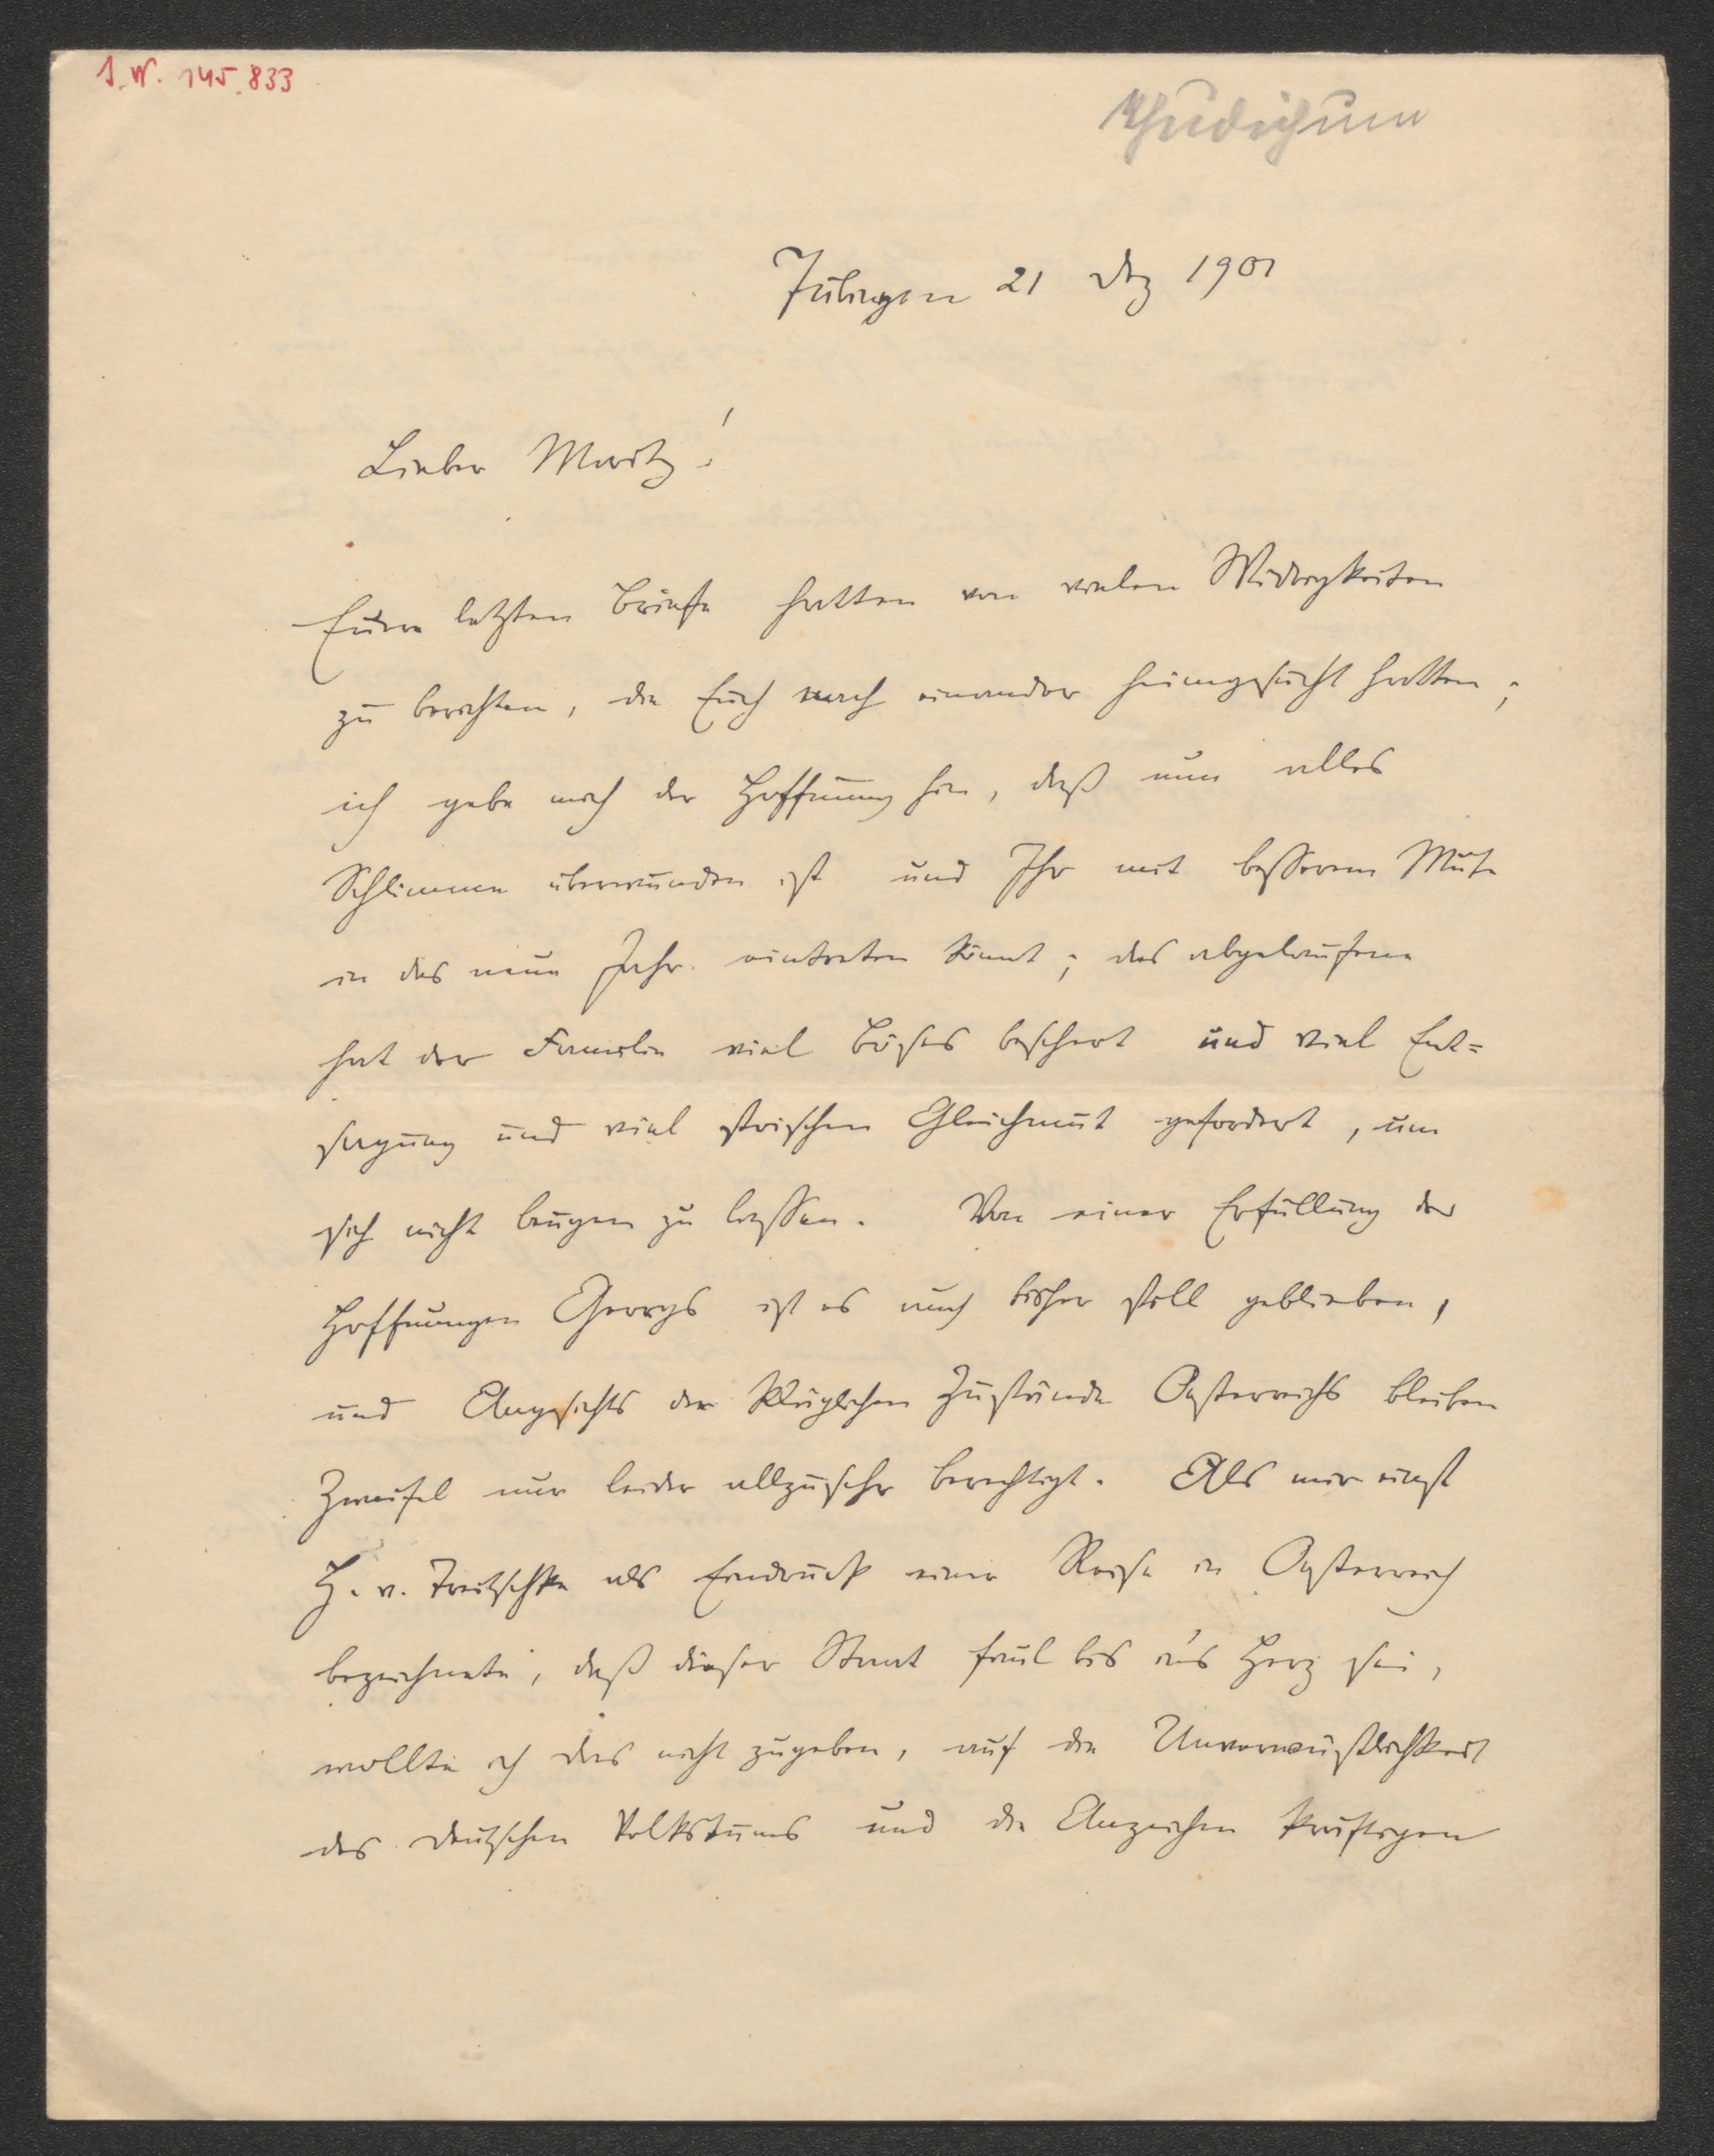 I.N. 145.833
Thudichum
Tübingen 21 Dez 1901
Lieber Moritz!
Eure letzten Briefe hatten von vielen Widrigkeiten
zu berichten, die Euch nach einander heimgesucht hatten;
ich gebe mich der Hoffnung hin, daß nun alles
Schlimme überwunden ist und Ihr mit besserem Mute
in das neue Jahr eintreten könnt; das abgelaufene
hat der Familie viel Böses beschert und viel Ent-
sagung und viel stoischen Gleichmut gefordert, um
sich nicht beugen zu lassen. Von einer Erfüllung der
Hoffnungen Georgs ist es auch bisher still geblieben,
und Angesichts der kläglichen Zustände Oesterreichs bleiben
Zweifel nur leider allzusehr berechtigt. Als mir einst
H. v. Treitschke als Eindruck einer Reise in Oesterreich
bezeichnete, daß dieser Staat faul bis in's Herz sei,
wollte ich das nicht zugeben, auf die Unverwüstlichkeit
des deutschen Volkstums und die Anzeichen kräftigen